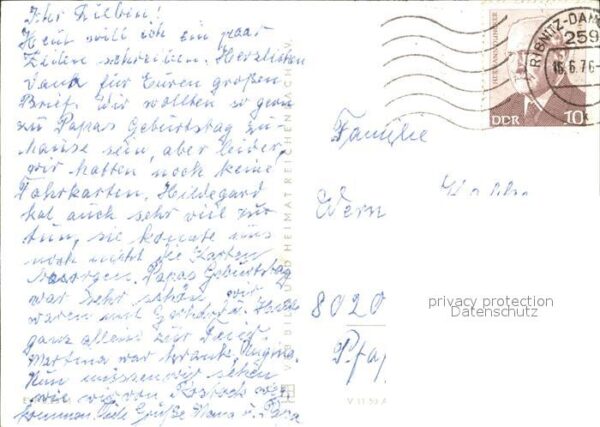 Ihr Lieben!
Heut will ich ein paar
Zeilen schreiben. Herzlichen
Dank für Euren großen
Brief. Wir wollten so gern
zu Papas Geburtstag zu-
hause sein, aber leider
wir hatten noch keine
Fahrkarten. Hildegard
hat auch sehr viel zu
tun, sie konnte uns
noch nicht die Karten
besorgen. Papas Geburtstag
war sehr schön wir
waren mit
ganz allein zur Feier.
Martina war krank,
Nun müssen wir sehen
wie wir von Rostock weg
kommen. Viele Grüße Mama u. Papa
VEB BILD UND HEIMAT REICHENBACH I. V.
RIBNITZ-DAM
259
16.6.76
DDR
10
Familie
Wern
8020
privacy protection
Datenschutz